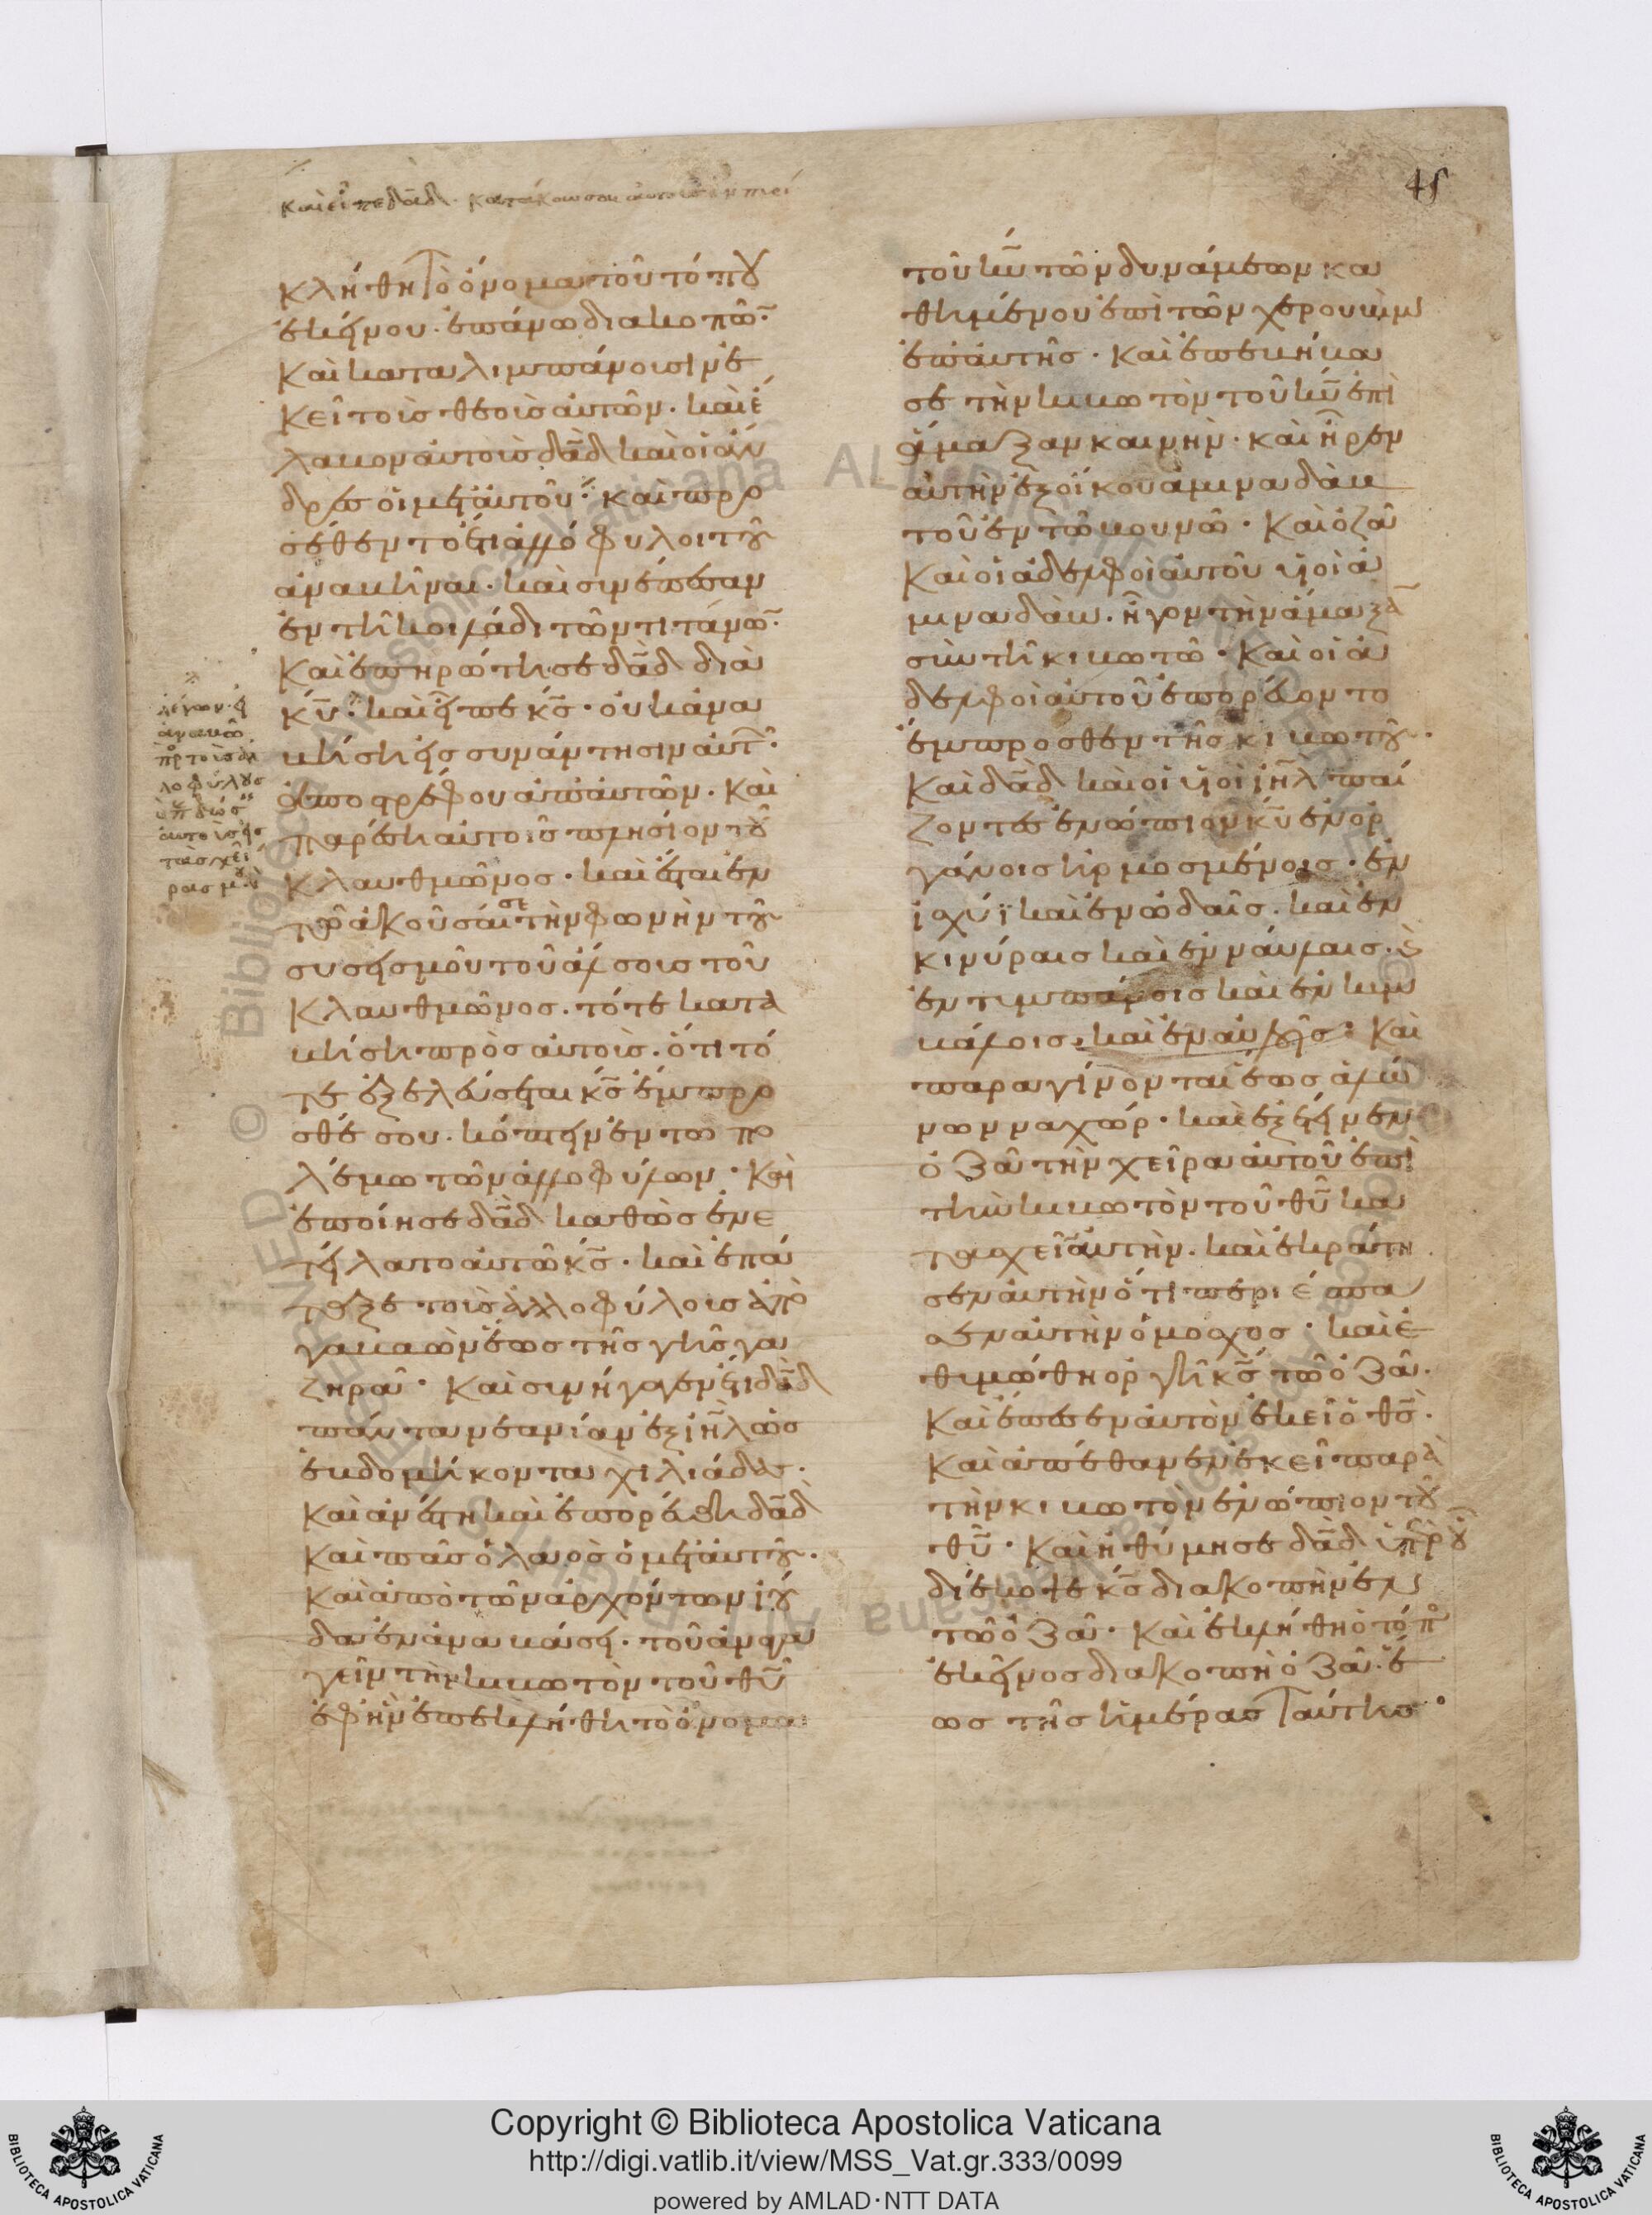 καὶ εἶπε δᾱδ. κατάκαυσον αὐτοὺς ἐν πυρί
45
κλήθη τὸ ὄνομα τοῦ τόπου
ἐκείνου. ἐπάνω διακοπῶ̄.
καὶ καταλιμπάνουσιν ἐ
κεῖ τοὺς θεοὺς αὐτῶν. καὶ ἔ
λαβον αὐτοὺς δᾱδ καὶ οἱ ἄν
δρες οἱ μετ' αὐτοῦ· καὶ προ
σέθεντο ἔτι ἀλλόφυλοι τοῦ
ἀναβῆναι. καὶ συνέπεσαν
ἐν τῆ κοιλάδι τῶν τιτάνω̄.
καὶ ἐπηρώτησε δᾱδ διὰ
κῡ. καὶ εἶπε κ̄ς. οὐκ ἀνα
βήση εἰς συνάντησιν αὐτῶ̄.
ἀποστρέφου ἀπ' αὐτῶν. καὶ
παρέση αὐτοῖς πλησίον τοῦ
κλαυθμῶνος. καὶ ἔσται ἐν
τῶ ἀκοῦσαί σε τὴν φωνὴν τοῦ
συσεισμοῦ τοῦ ἄλσους τοῦ
κλαυθμῶνος. τότε κατα
βήση πρὸς αὐτούς. ὅτι τό
τε ἐξελεύσεται κ̄ς ἔμπρο
σθέ σου. κόπτειν ἐν τῶ πο
λέμω τῶν ἀλλοφύλων. καὶ
ἐποίησε δᾱδ καθὼς ἐνε
τείλατο αὐτῶ κ̄ς. καὶ ἐπά
ταξε τοὺς ἀλλοφύλους ἀπὸ
γαβαὼν ἕως τῆς γῆς γα
ζηρά. καὶ συνήγαγεν ἔτι δᾱδ
πάντα νεανίαν ἐξ ιη̄λ ὡς
ἑβδομήκοντα χιλιάδες.
καὶ ἀνέστη καὶ ἐπορεύθη δᾱδ
καὶ πᾶς ὁ λαὸς ὁ μετ' αὐτοῦ.
καὶ ἀπὸ τῶν ἀρχόντων ἰού
δα ἐν ἀναβάσει. τοῦ ἀναγα
γεῖν τὴν κιβωτὸν τοῦ θῡ
ἐφ' ἣν ἐπεκλήθη τὸ ὄνομα
λέγων. εἰ
ἀναβῶ
πρὸς τοὺς ἀλ
λοφύλους
εἰ παραδώσεις
αὐτοὺς εἰς
τὰς χεῖ
ρας μου
τοῦ κῡ τῶν δυνάμεων κα
θημένου ἐπὶ τῶν χερουβὶμ
ἐπ' αὐτῆς. καὶ ἐπεβίβα
σε τὴν κιβωτὸν τοῦ κῡ ἐπὶ
ἅμαξαν καινήν. καὶ ἦρεν
αὐτὴν ἐξ οἴκου ἀμιναδὰβ
τοῦ ἐν τῶ βουνῶ. καὶ ὀζᾶ
καὶ οἱ ἀδελφοὶ αὐτοῦ υἱοὶ ἀ
μιναδάβ. ἦγον τὴν ἅμαξᾱ
σὺν τῆ κιβωτῶ. καὶ οἱ ἀ
δελφοὶ αὐτοῦ ἐπορεύοντο
ἔμπροσθεν τῆς κιβωτοῦ.
καὶ δᾱδ καὶ οἱ υἱοὶ ιη̄λ παί
ζοντες ἐνώπιον κῡ ἐν ὀρ
γάνοις ἡρμοσμένοις. ἐν
ἰσχύϊ καὶ ἐν ὠδαῖς. καὶ ἐν
κινύραις καὶ ἐν νάβλαις. καὶ
ἐν τυμπάνοις καὶ ἐν κυμ
βάλοις. καὶ ἐν αὐλοῖς. καὶ
παραγίνονται ἕως ἅλω
νων ναχώρ. καὶ ἐξέτεινεν
ὀζᾶ τὴν χεῖρα αὐτοῦ ἐπὶ
τὴν κιβωτὸν τοῦ θῡ κα
τασχεῖν αὐτήν. καὶ ἐκράτη
σεν αὐτὴν ὅτι περιέσπα
σεν αὐτὴν ὁ μόσχος. καὶ ἐ
θυμώθη ὀργῆ κ̄ς τῶ ὀζᾶ.
καὶ ἔπεσεν αὐτὸν ἐκεῖ ὁ θ̄ς.
καὶ ἀπέθανεν ἐκεῖ παρὰ
τὴν κιβωτὸν ἐνώπιον τοῦ
θῡ. καὶ ἠθύμησε δᾱδ ὑπὲρ οὗ
διέκοψε κ̄ς διακοπὴν ἐν
τῶ ὀζᾶ. καὶ ἐκλήθη ὁ τόπος
ἐκεῖνος διακοπὴ ὀζᾶ. ἕ
ως τῆς ἡμέρας ταύτης.
Copyright © Biblioteca Apostolica Vaticana
http://digi.vatlib.it/view/MSS_Vat.gr.333/0099
powered by AMLAD·NTT DATA
BIBLIOTECA APOSTOLICA VATICANA
BIBLIOTECA APOSTOLICA VATICANA